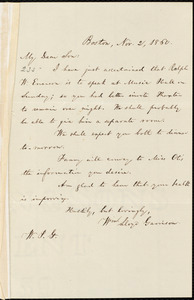 Boston, Nov. 2, 1860.
My Dear Son
I have just ascertained that Ralph
W. Emerson is to speak at Music Hall on
Sunday; so you had better invite
to remain over night. We shall probably
be able to give him a separate room.
We shall expect you both to dinner
to-morrow.
Fanny will convey to Miss Otis
the information you desire.
Am glad to know that your health
is improving.
Hastily, but lovingly,
Wm. Lloyd Garrison
W. P. G.